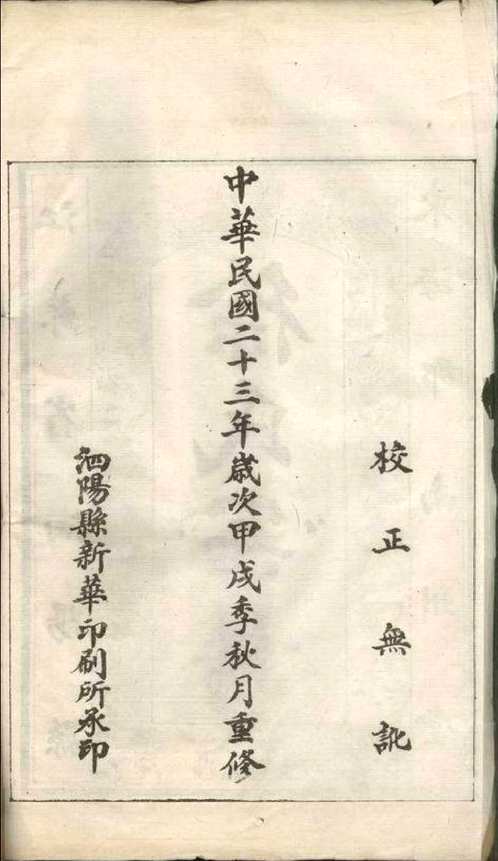 校正無訛
中華民國二十三年歲次甲戌季秋月重修
泗陽縣新華印刷所承印